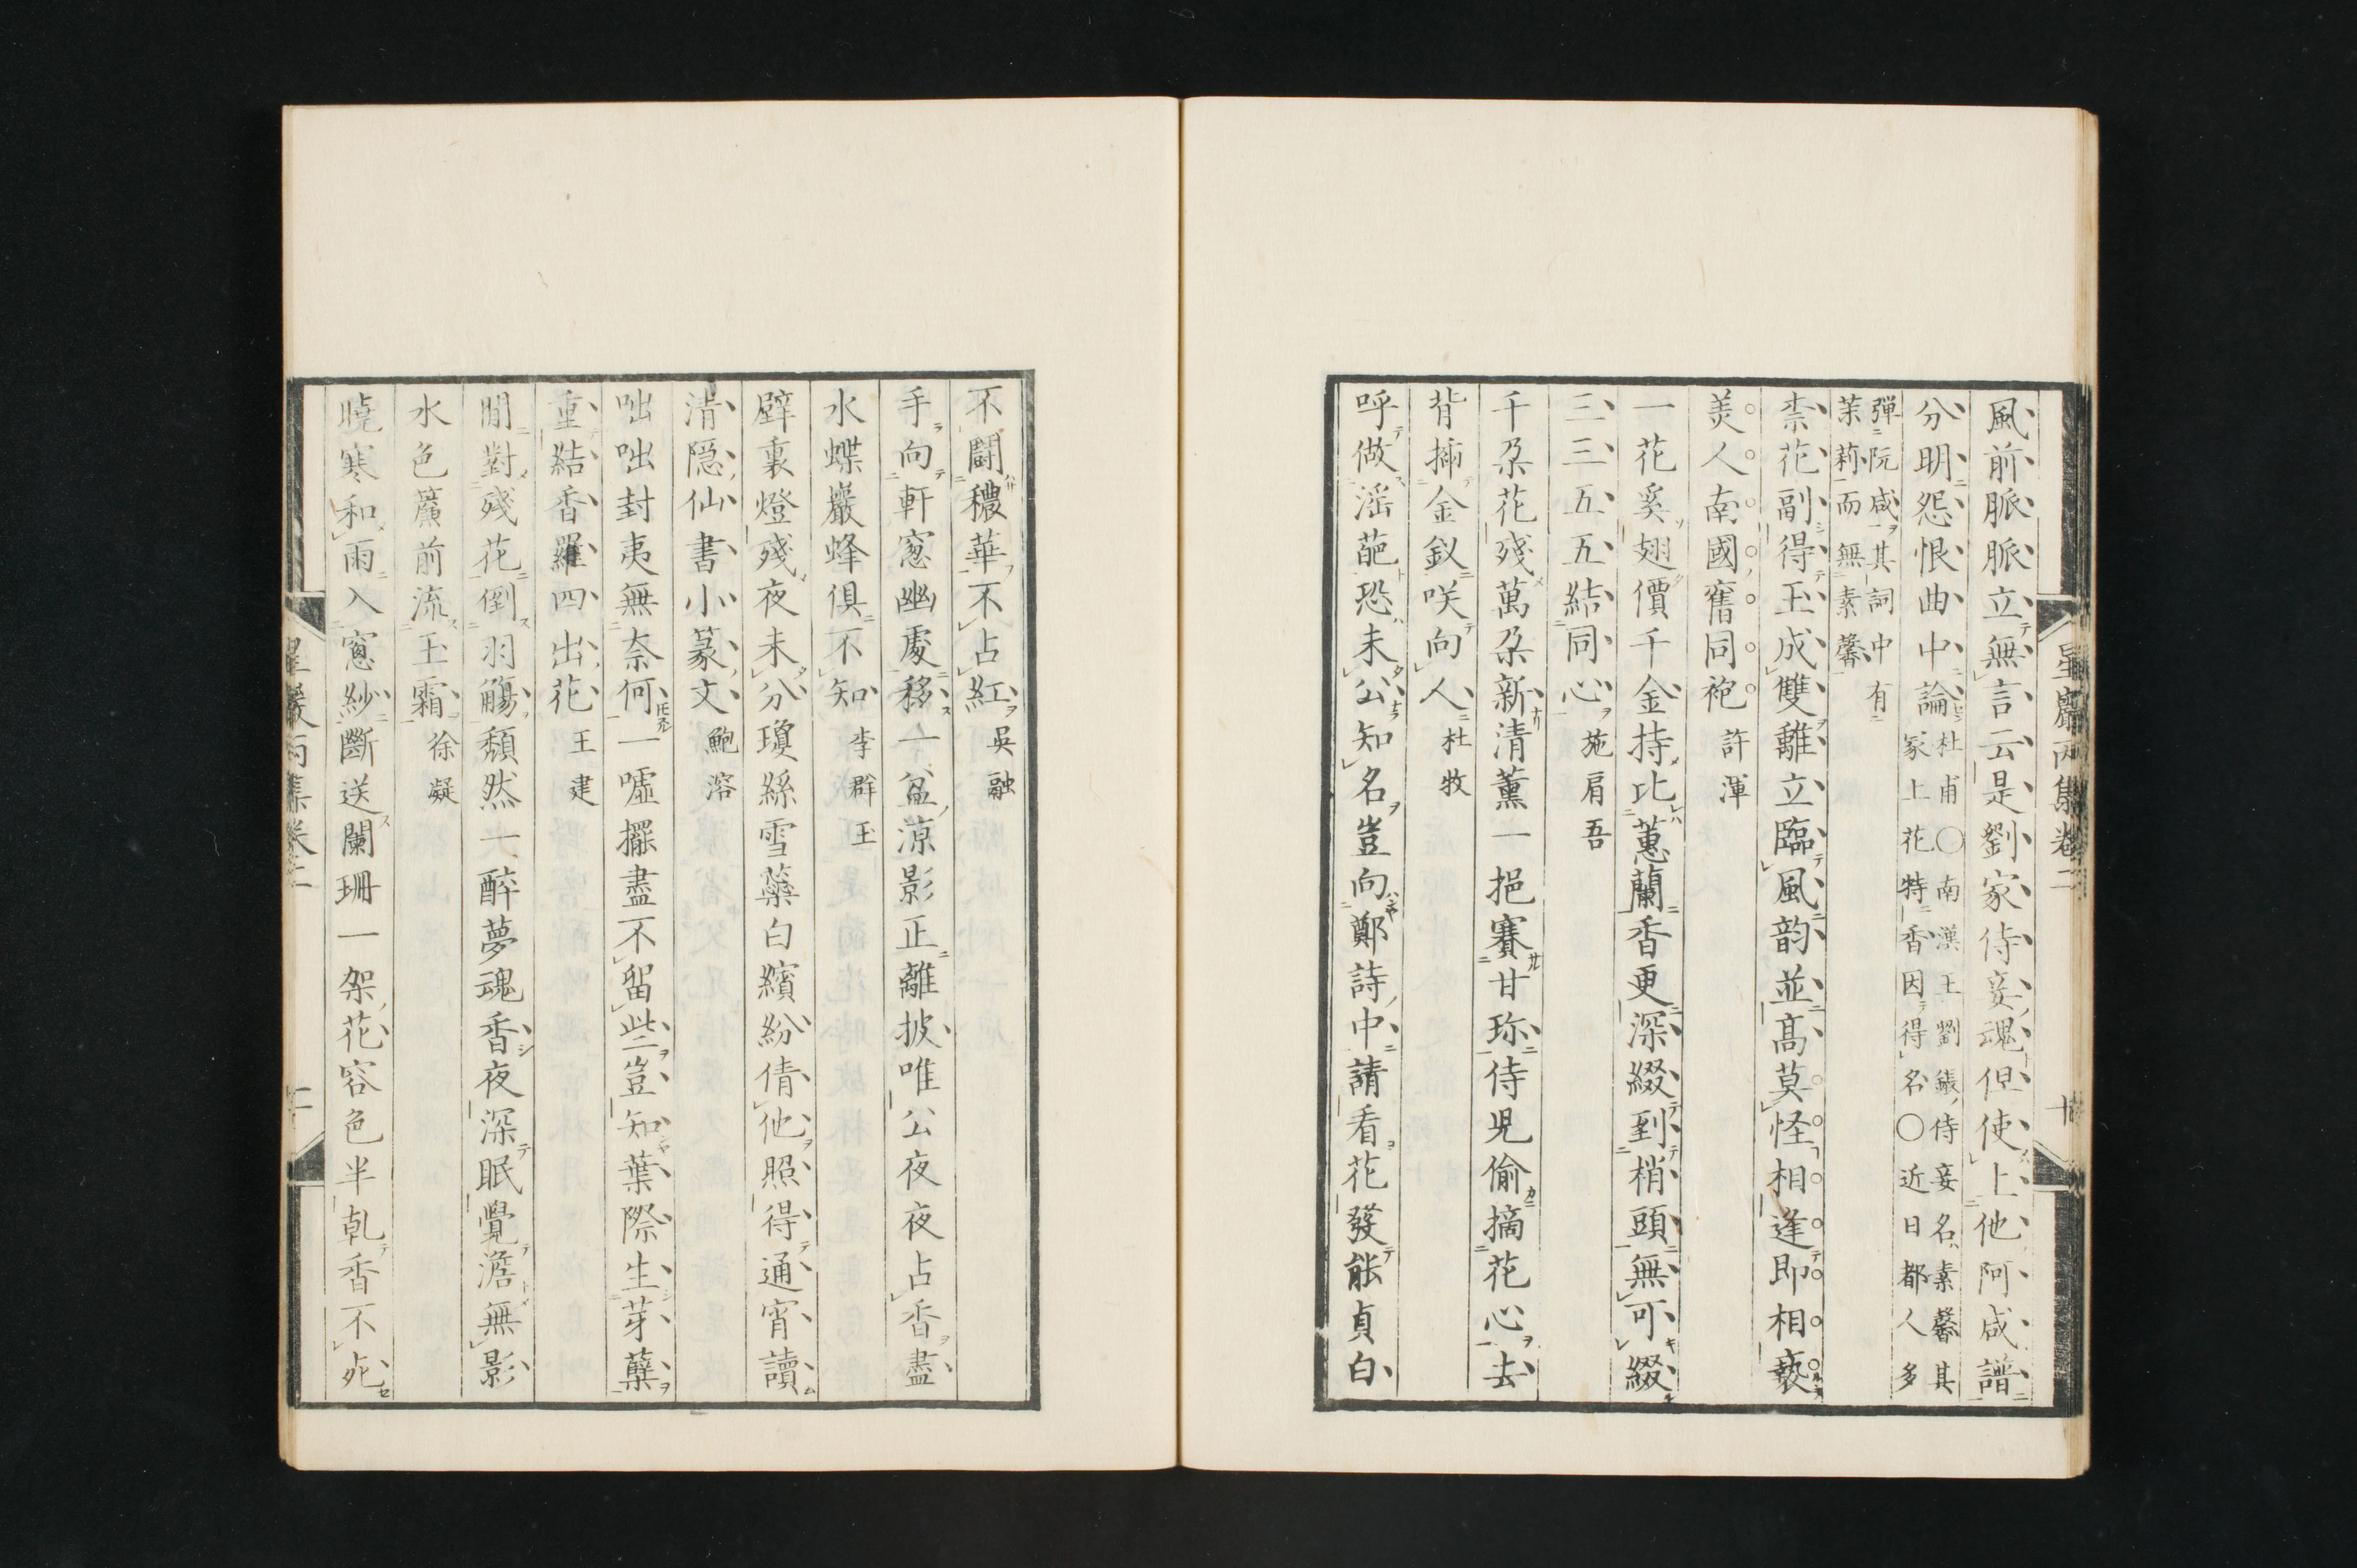 風前脈脈立無言云是劉家侍妾魂但使上他阿咸譜
分明怨恨曲中論
杜甫○南漢王劉鋹侍妾名素馨其
冢上花特香因得名○近日都人多
彈阮咸其詞中有
茉莉而無素馨
柰花副得玉成雙離立臨風韵並高莫怪相逢即相褻
美人南國舊同袍 許渾
一花奚翅價千金持比蕙蘭香更深綴到梢頭無可綴
三三五五結同心 施肩吾
千朶花殘萬朶新清薰一挹賽甘珎侍児偷摘花心去
背揷金釵咲向人 杜牧
呼做滛葩恐未公知名豈向鄭詩中請看花發能貞白
星巖丙集卷二
不鬪穠華不占紅 吳融
手向軒窓幽處移一盆涼影正離披唯公夜夜占香盡
水蝶巖蜂俱不知 李群玉
壁裏燈殘夜未分瓊絲雪蘂白繽紛倩他照得通宵讀
清隠仙書小篆文 鮑溶
咄咄封夷無奈何一嘘擺盡不留些豈知葉際生芽蘖
重結香羅四出花 王建
閒對殘花倒羽觴頽然一醉夢魂香夜深眠覺澹無影
水色簾前流玉霜 徐凝
曉寒和雨入窓紗斷送闌珊一架花容色半乹香不死
星巖丙集卷二